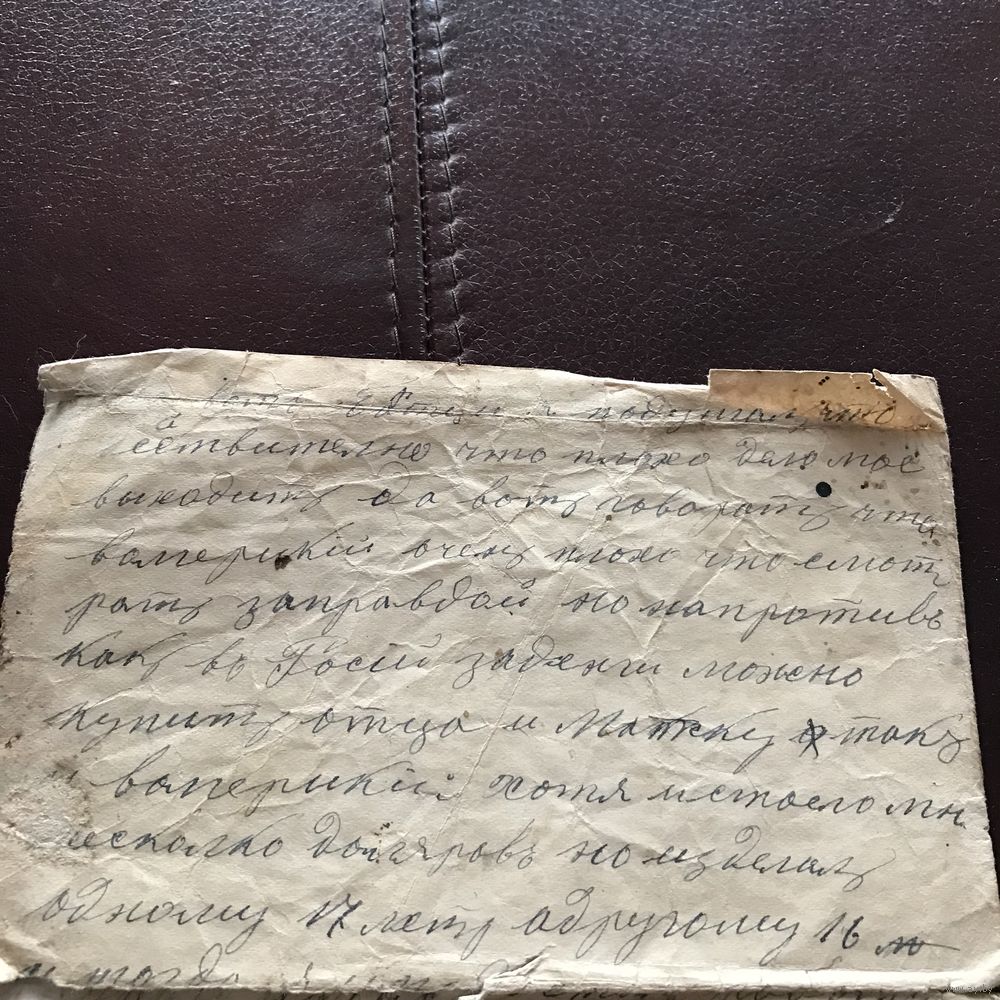 я подумал что
ствително что плохо дело мое
выходитъ да вотъ говоратъ что
вамерикіи очень плохо что смот
ратъ заправдой но напротивъ
какъ въ Росіи заденги можно
купитъ отца и Матку такъ
и вамерикіи хотя и стоело мн
несколко доляровъ но изделалъ
одному 17 летъ адругому 16 л
и тогда